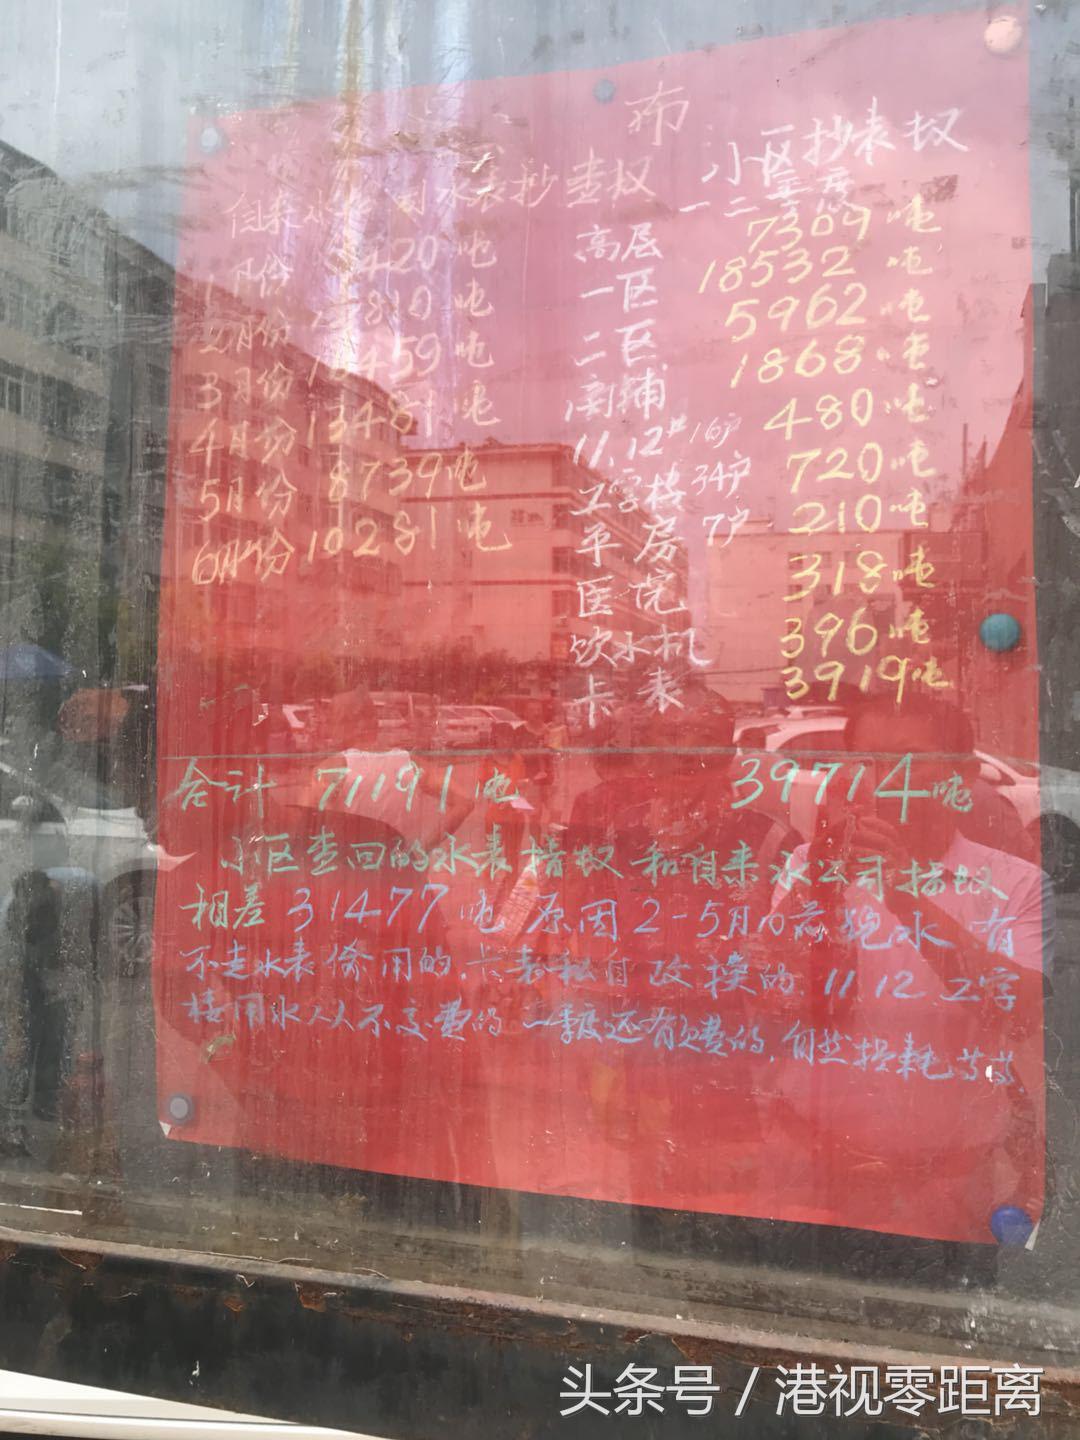 布
自来水公司水表抄查权 小区抄表权
一二季度
1月份 420吨 高层 7309吨
2月份 810吨 一区 18532吨
3月份 16459吨 二区 5962吨
4月份 13481吨 商铺 1868吨
5月份 8739吨 11.12# 16户 480吨
6月份 10281吨 工字楼 34户 720吨
平房 7户 210吨
医院 318吨
饮水机 396吨
卡表 3919吨
合计 71191吨 39714吨
小区查回的水表指权和自来水公司指权
相差31477吨 原因2-5月10前跑水 有
不走水表偷用的.卡表私自改换的.11.12.工字
楼用水人从不交费的 一季度还有欠费的.自然损耗等等
头条号 / 港视零距离